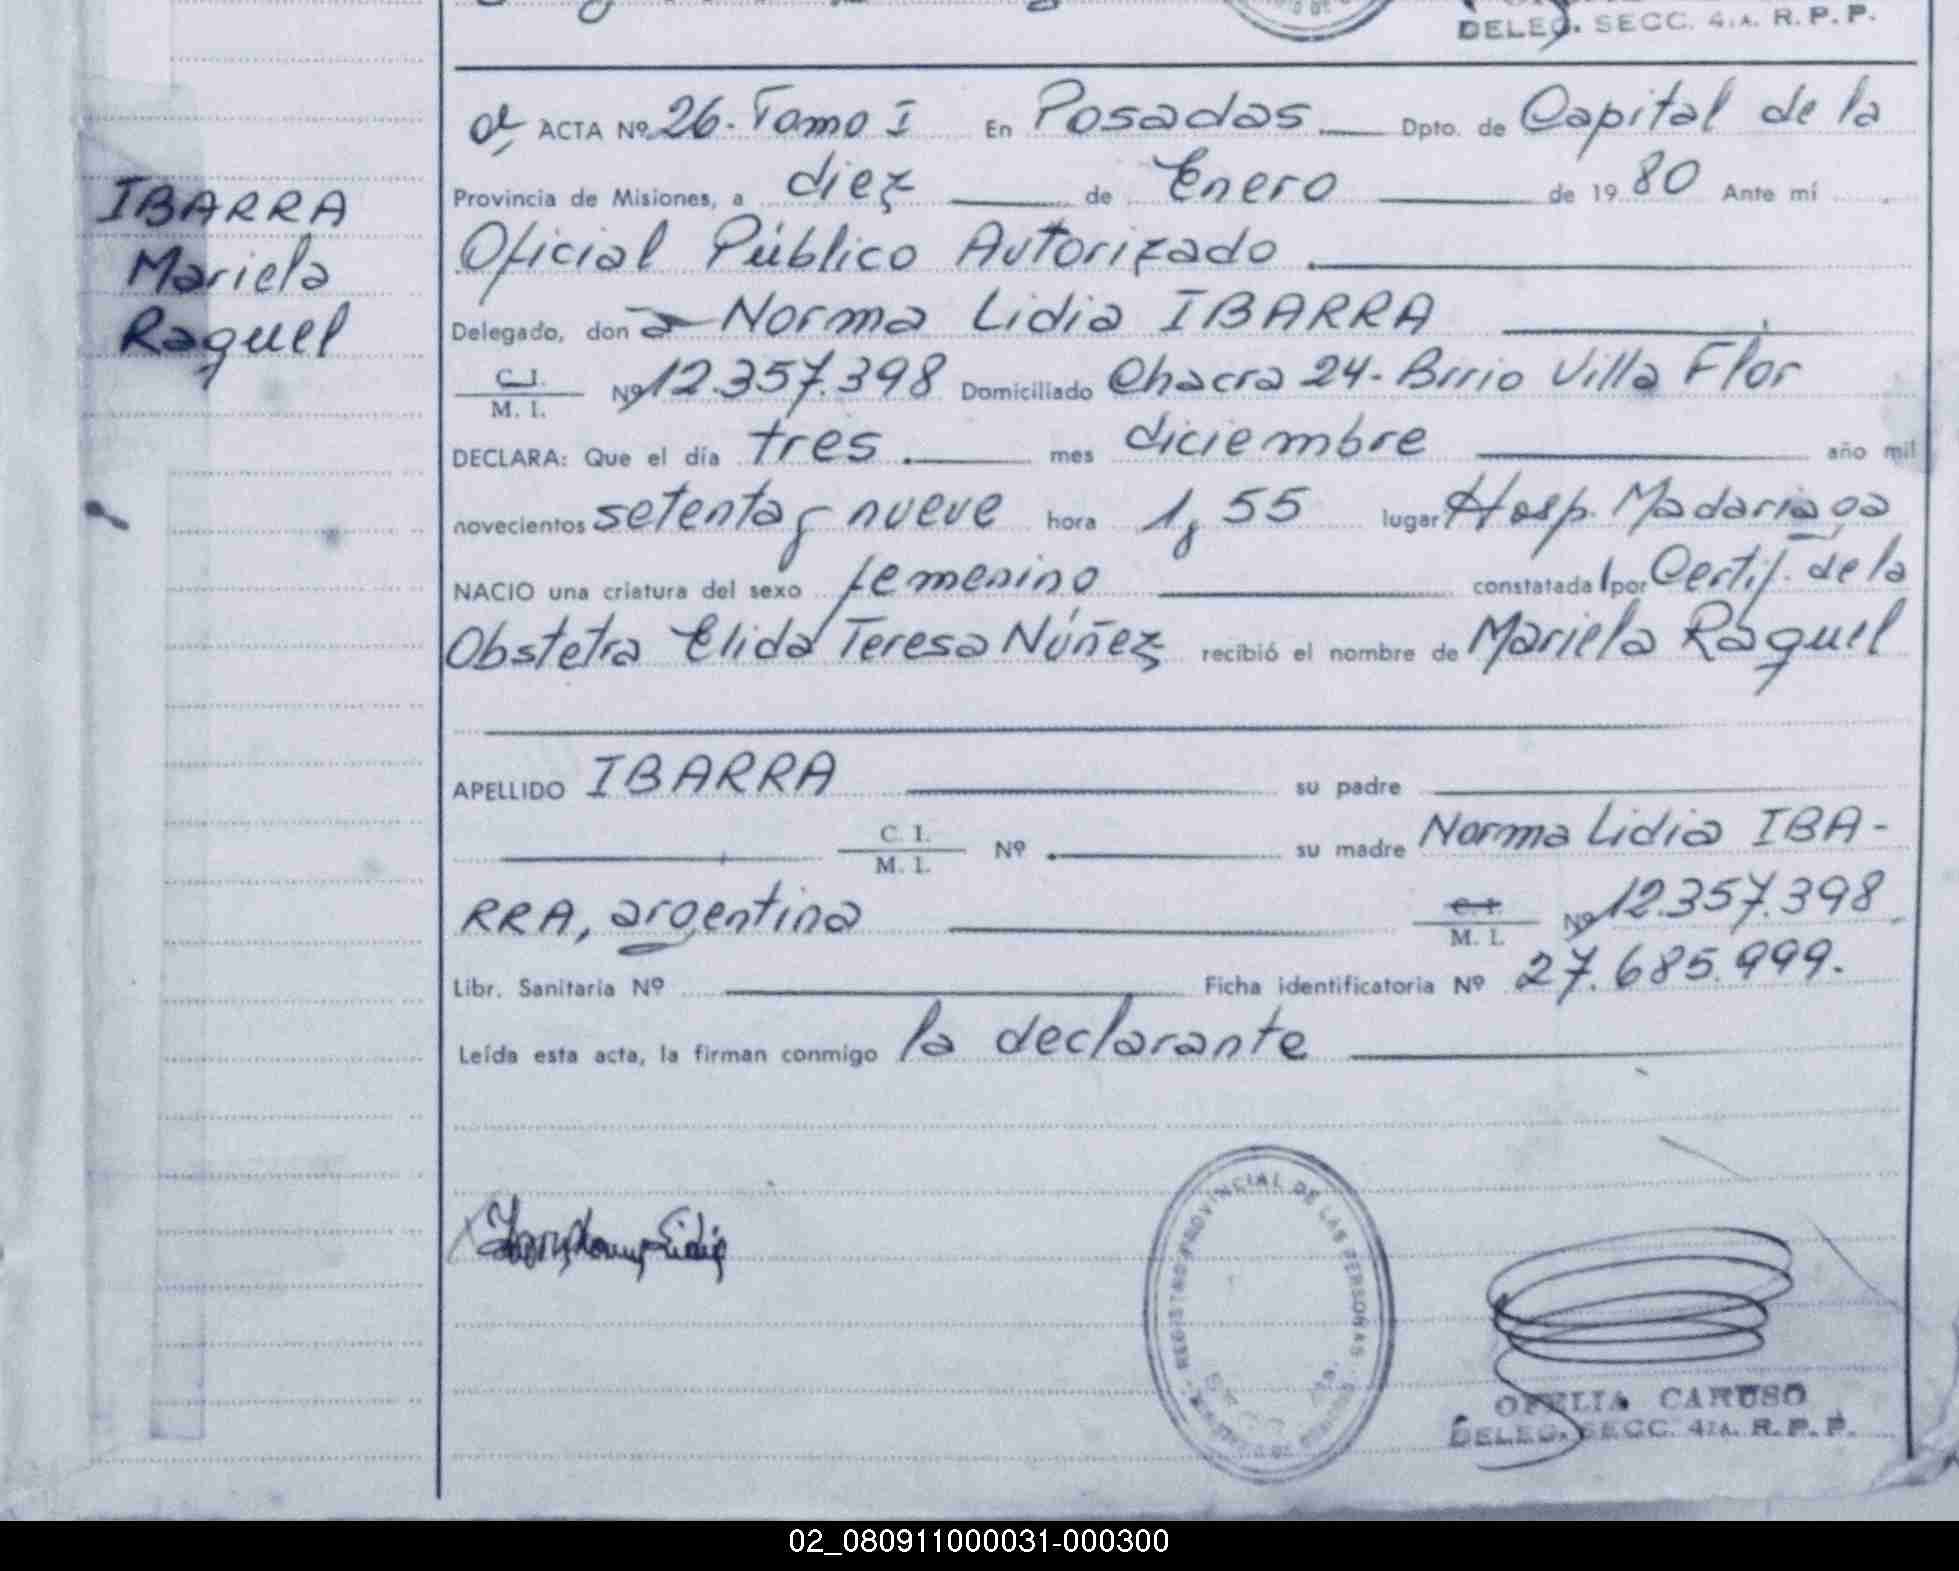 DELEG. SECC. 4.ta. R. P. P.
ACTA Nº 26. Tomo I En Posadas Dpto. de Capital de la
Provincia de Misiones, a diez de Enero de 1980 Ante mí
IBARRA
Mariela
Raquel
Oficial Público Autorizado
Delegado, don a Norma Lidia IBARRA
C. I.
M. I. Nº 12.357.398 Domiciliado Chacra 24- Brrio Villa Flor
DECLARA: Que el día tres mes diciembre año mil
novecientos setenta y nueve hora 1,55 lugar Hosp. Madariaga
NACIO una criatura del sexo femenino constatada por Certif. de la
Obstetra Elida Teresa Núñez recibió el nombre de Mariela Raquel
APELLIDO IBARRA su padre
C. I.
M. I. Nº su madre Norma Lidia IBA-
RRA, argentina C. I.
M. I. Nº 12.357.398
Libr. Sanitaria Nº Ficha identificatoria Nº 27.685.999.
Leída esta acta, la firman conmigo la declarante
Lidia
REGISTRO PROVINCIAL DE LAS PERSONAS
SECC. 4ta.
OFELIA CARUSO
DELEG. SECC. 4ta. R. P. P.
02_080911000031-000300